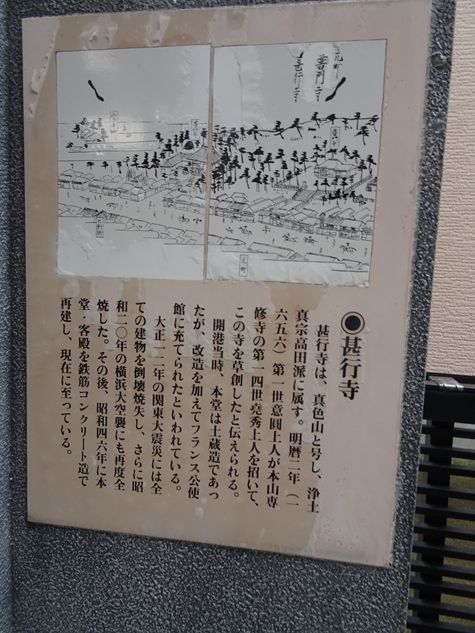 元町
甚行寺
◉甚行寺
甚行寺は、真色山と号し、浄土
真宗高田派に属す。明暦二年（一
六五六）第一世意圓上人が本山専
修寺の第一四世堯秀上人を招いて、
この寺を草創したと伝えられる。
開港当時、本堂は土蔵造であっ
たが、改造を加えてフランス公使
館に充てられたといわれている。
大正一二年の関東大震災には全
ての建物を倒壊焼失し、さらに昭
和二〇年の横浜大空襲にも再度全
焼した。その後、昭和四六年に本
堂・客殿を鉄筋コンクリート造で
再建し、現在に至っている。